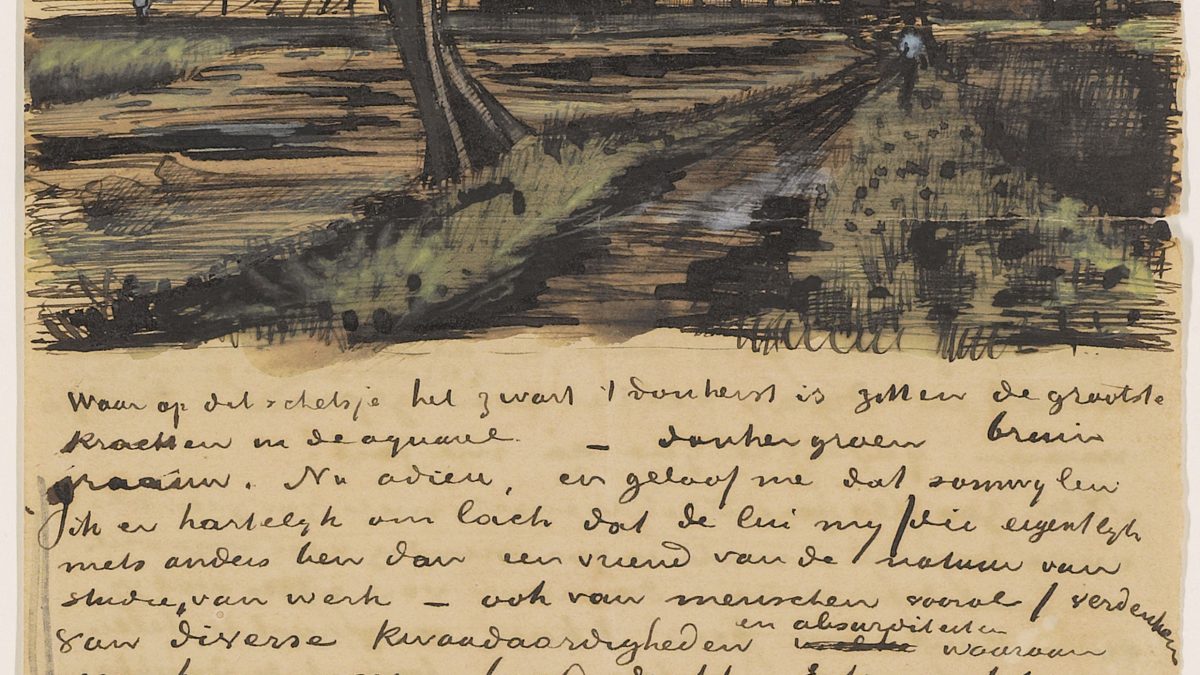 Waar op dit schetsje het zwart 't donkerst is zitten de grootste
krachten in de aquarel – donkergroen bruin
graauw. Nu adieu, en geloof me dat somwylen
ik er hartelyk om lach dat de lui my /die eigentlyk
niets anders ben dan een vriend van de natuur van
studie, van werk – ook van menschen vooral / verdenken
van diverse kwaadaardigheden en absurditeiten waaraan